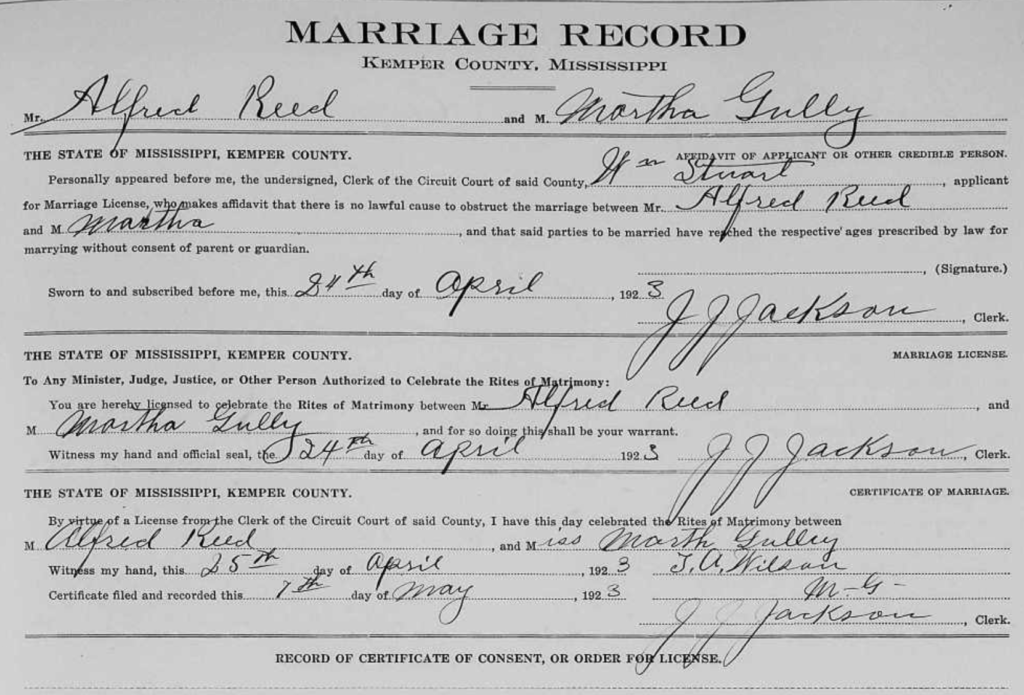 MARRIAGE RECORD
KEMPER COUNTY, MISSISSIPPI
Mr. Alfred Reed and M. Martha Gully
THE STATE OF MISSISSIPPI, KEMPER COUNTY. AFFIDAVIT OF APPLICANT OR OTHER CREDIBLE PERSON.
Personally appeared before me, the undersigned, Clerk of the Circuit Court of said County, Wm Stuart, applicant
for Marriage License, who makes affidavit that there is no lawful cause to obstruct the marriage between Mr. Alfred Reed
and M Martha, and that said parties to be married have reached the respective ages prescribed by law for
marrying without consent of parent or guardian.
, (Signature.)
Sworn to and subscribed before me, this 24th day of April, 1923
J J Jackson, Clerk.
THE STATE OF MISSISSIPPI, KEMPER COUNTY. MARRIAGE LICENSE.
To Any Minister, Judge, Justice, or Other Person Authorized to Celebrate the Rites of Matrimony:
You are hereby licensed to celebrate the Rites of Matrimony between Mr Alfred Reed, and
M Martha Gully, and for so doing this shall be your warrant.
Witness my hand and official seal, the 24th day of April 1923 J J Jackson, Clerk.
THE STATE OF MISSISSIPPI, KEMPER COUNTY. CERTIFICATE OF MARRIAGE.
By virtue of a License from the Clerk of the Circuit Court of said County, I have this day celebrated the Rites of Matrimony between
M Alfred Reed, and Miss Marth Gulley
Witness my hand, this 25th day of April, 1923 T. A. Wilson
M-G-
Certificate filed and recorded this 7th day of May, 1923
J J Jackson, Clerk.
RECORD OF CERTIFICATE OF CONSENT, OR ORDER FOR LICENSE.